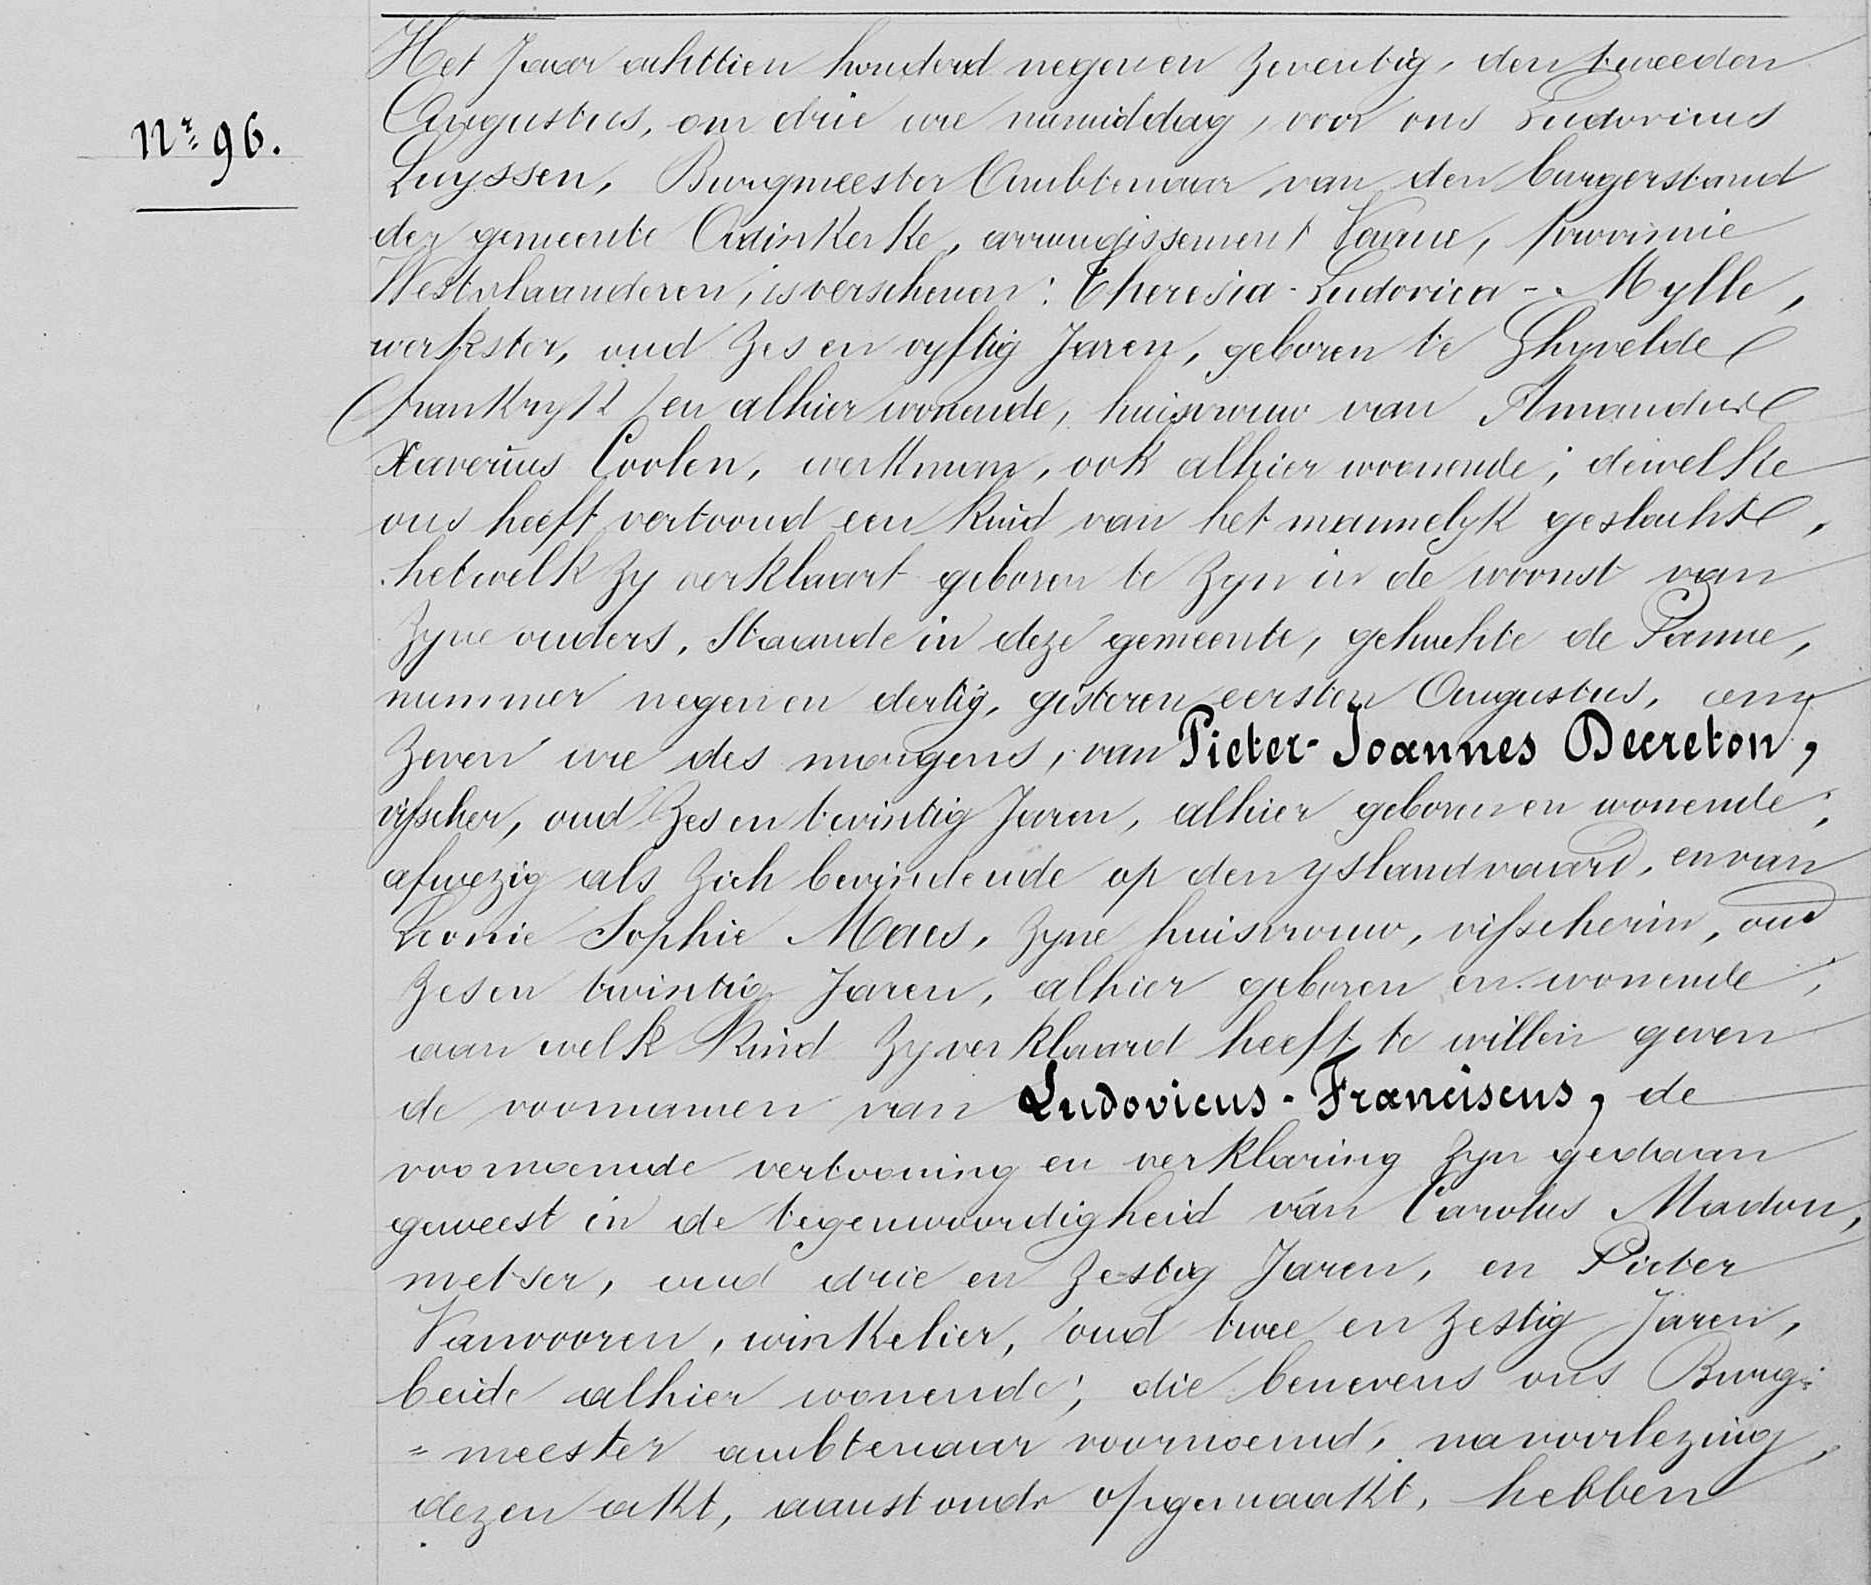 Het Jaar achttien honderd negen en Zeventig, den tweeden
Augustus, om drie ure namiddag, voor ons Ludovicus
Nr. 96.
Luyssen, Burgmeester Ambtenaar van den burgerstand
der gemeente Adinkerke, arrondissement Veurne, provincie
Westvlaanderen, is verschenen: Theresia-Ludovica-Mylle,
werkster, oud Zes en vyftig Jaren, geboren te Ghyvelde
(Frankryk) en alhier wonende, huisvrouw van Amandus
Xaverius Coolen, werkman, ook alhier woonende; dewelke
ons heeft vertoond een Kind van het mannelyk geslacht,
hetwelk Zy verklaart geboren te Zyn in de woonst van
Zyne ouders, Staande in deze gemeente, gehuchte de Panne,
nummer negen en dertig, gisteren eersten Augustus, om
Zeven ure des morgens, van Pieter-Joannes Decreton,
visscher, oud Zes en twintig Jaren, alhier geboren en wonende,
afwezig als Zich bevindende op den yslandvaard, en van
Leonie Sophie Maes, Zyne huisvrouw, visscherin, oud
Zes en twintig Jaren, alhier geboren en wonende,
aan welk Kind Zy verklaard heeft te willen geven
de voornamen van Ludovicus-Franciscus, de
voornoemde vertooning en verklaring Zyn gedaan
geweest in de tegenwoordigheid van Carolus Madou,
metser, oud drie en Zestig Jaren, en Pieter
Vanvooren, winkelier, oud twee en Zestig Jaren,
beide alhier wonende; die benevens ons Burg=
=meester ambtenaar voornoemd, na voorlezing,
dezen akt, aanstonds opgemaakt, hebben